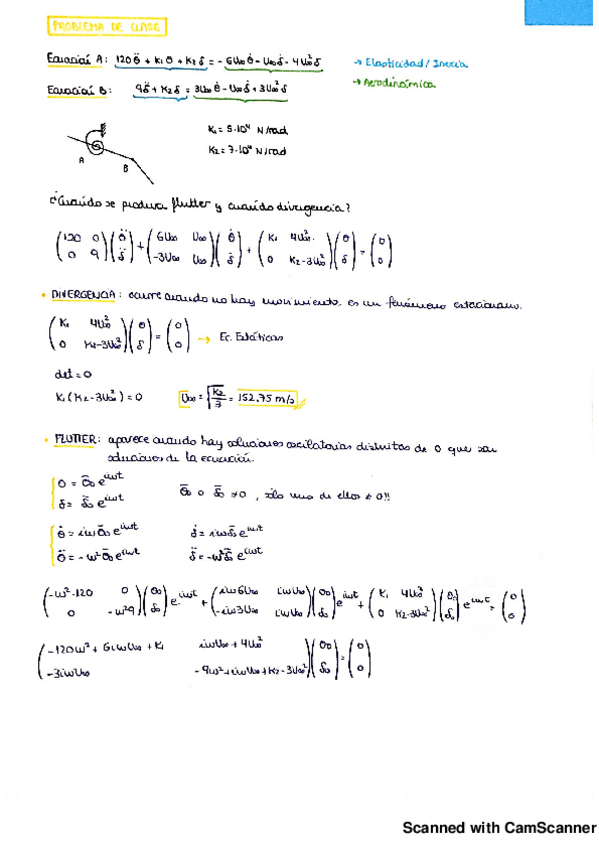 PROBLEMA DE CLASE
Ecuación A: 120θ̈ + K₁θ + K₂δ = -6U∞θ̇ - U∞δ̇ - 4U∞²δ → Elasticidad / Inercia
Ecuación B: 9δ̈ + K₂δ = 3U∞θ̇ - U∞δ̇ + 3U∞²δ → Aerodinámica
K₁ = 5·10⁴ N/rad
A
B
K₂ = 7·10⁴ N/rad
¿Cuándo se produce flutter y cuándo divergencia?
(120 0; 0 9)(θ̈; δ̈) + (6U∞ U∞; -3U∞ U∞)(θ̇; δ̇) + (K₁ 4U∞²; 0 K₂-3U∞²)(θ; δ) = (0; 0)
• DIVERGENCIA: ocurre cuando no hay movimiento, es un fenómeno estacionario.
(K₁ 4U∞²; 0 K₂-3U∞²)(θ; δ) = (0; 0) → Ec. Estáticas
det = 0
K₁(K₂-3U∞²) = 0 U∞ = √(K₂/3) = 152,75 m/s
• FLUTTER: aparece cuando hay soluciones oscilatorias distintas de 0 que son
soluciones de la ecuación.
θ = θ̄₀ e^iωt
δ = δ̄₀ e^iωt
θ̄₀ o δ̄₀ ≠ 0, sólo uno de ellos ≠ 0!!
θ̇ = iωθ̄₀ e^iωt δ̇ = iωδ̄₀ e^iωt
θ̈ = -ω²θ̄₀ e^iωt δ̈ = -ω²δ̄₀ e^iωt
(-ω²·120 0; 0 -ω²9)(θ₀; δ₀) e^iωt + (iω6U∞ iωU∞; -iω3U∞ iωU∞)(θ₀; δ₀) e^iωt + (K₁ 4U∞²; 0 K₂-3U∞²)(θ₀; δ₀) e^iωt = (0; 0)
(-120ω² + 6iωU∞ + K₁ iωU∞ + 4U∞²; -3iωU∞ -9ω² + iωU∞ + K₂ - 3U∞²)(θ₀; δ₀) = (0; 0)
Scanned with CamScanner